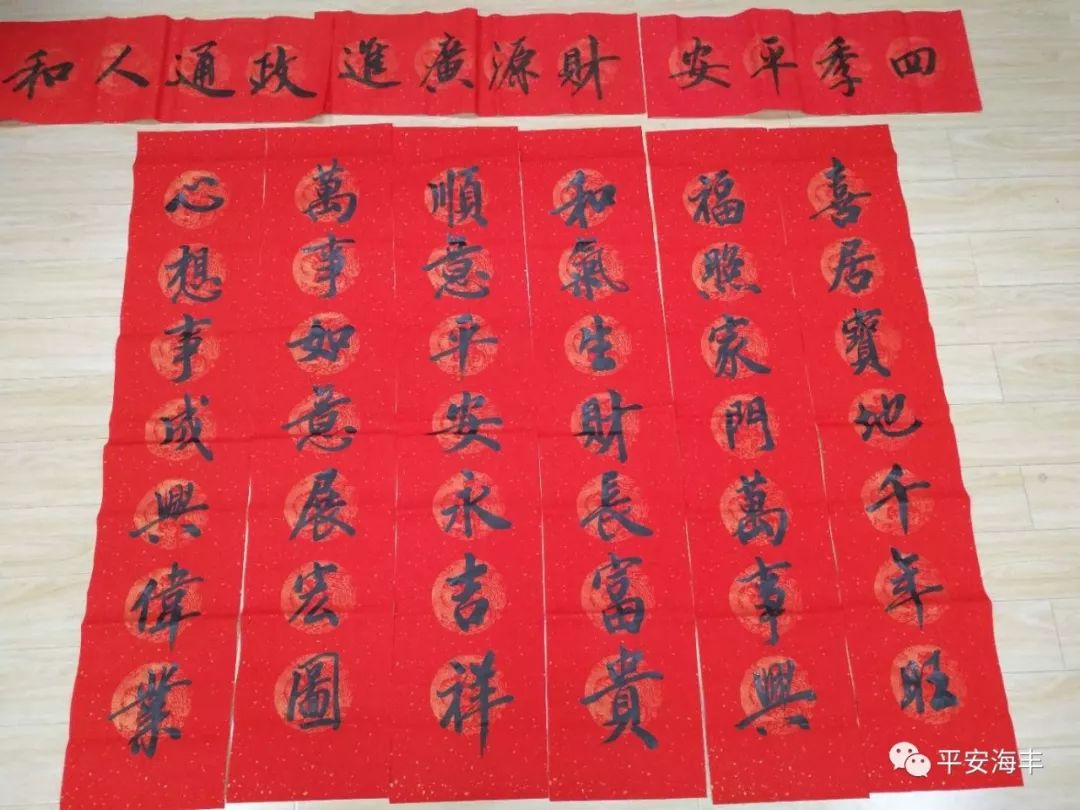 四季平安
財源廣進
政通人和
喜居寶地千年旺
福照家門萬事興
和氣生財長富貴
順意平安永吉祥
萬事如意展宏圖
心想事成興偉業
平安海丰